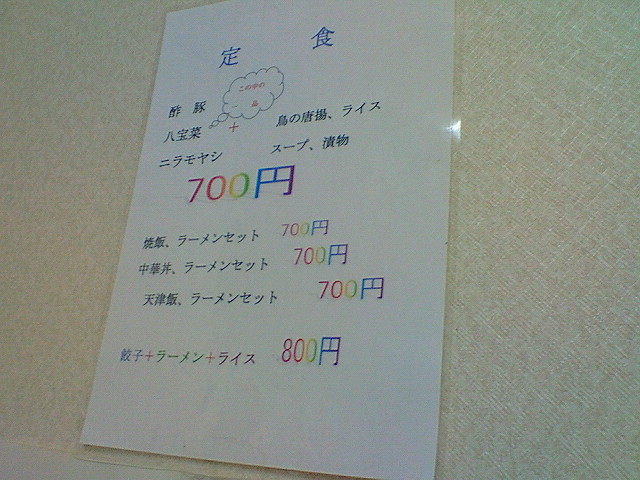 定食
この中の
一品
酢豚
八宝菜 + 鳥の唐揚、ライス
ニラモヤシ スープ、漬物
700円
焼飯、ラーメンセット 700円
中華丼、ラーメンセット 700円
天津飯、ラーメンセット 700円
餃子+ラーメン+ライス 800円